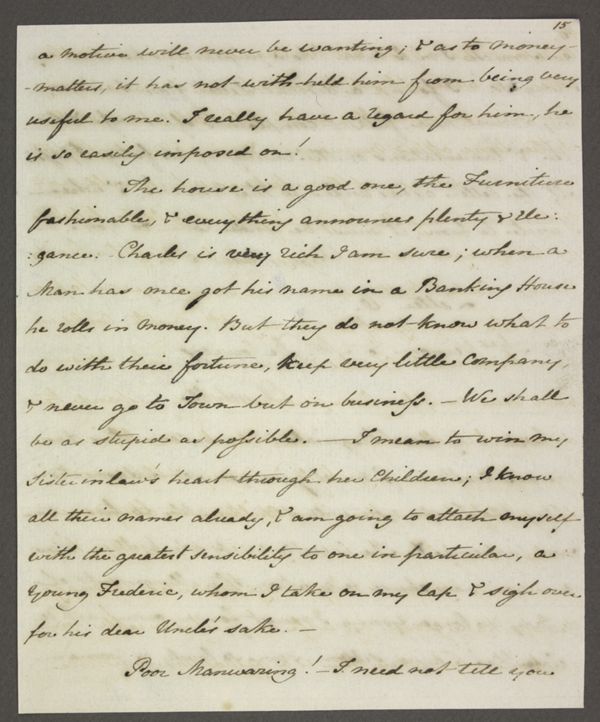 15
a motive will never be wanting; & as to money-
-matters, it has not with-held him from being very
useful to me. I really have a regard for him, he
is so easily imposed on!
The house is a good one, the Furniture
fashionable, & everything announces plenty & ele:
:gance. Charles is very rich I am sure; when a
Man has once got his name in a Banking House
he rolls in money. But they do not know what to
do with their fortune, keep very little Company,
& never go to Town but on business. — We shall
be as stupid as possible. — I mean to win my
Sister in law's heart through her Children; I know
all their names already, & am going to attach myself
with the greatest sensibility to one in particular, a
young Frederic, whom I take on my lap & sigh over
for his dear Uncle's sake. —
Poor Manwaring! — I need not tell you